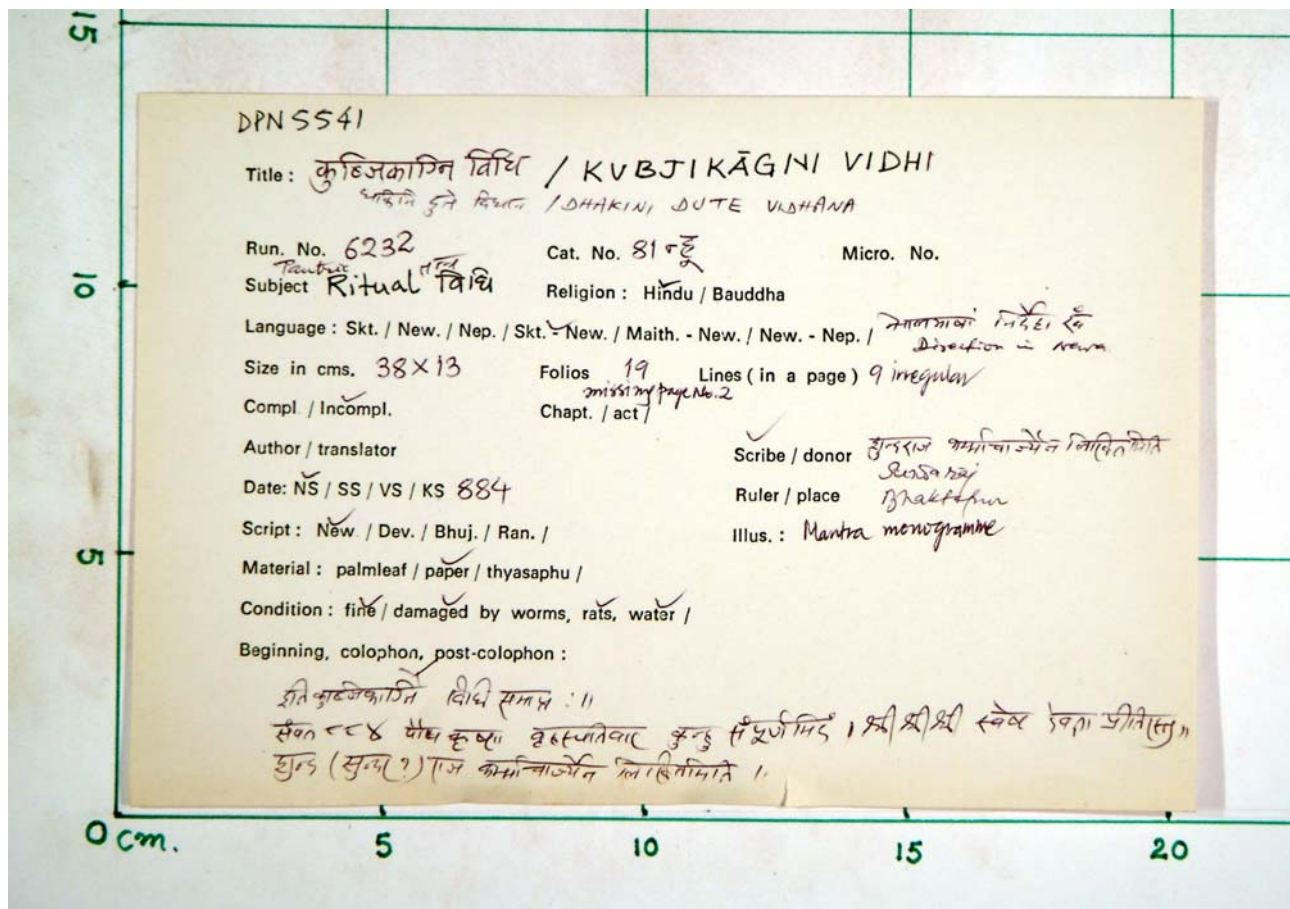 15
DPN 5541
Title : कुब्जिकाग्नि विधि / KUBJIKĀGNI VIDHI
/ DHAKINI DUTE VIDHANA
Run. No. 6232 Cat. No. 81 Micro. No.
Tantric
Subject Ritual विधि Religion : Hindu / Bauddha
10
Language : Skt. / New. / Nep. / Skt. - New. / Maith. - New. / New. - Nep. / नेपालभाषां निर्देश
Direction in Newa
Size in cms. 38×13 Folios 19 Lines ( in a page ) 9 irregular
missing page No. 2
Compl. / Incompl. Chapt. / act /
Author / translator Scribe / donor कर्म्माचार्ज्येन लिखितमिति
Date: NS / SS / VS / KS 884 Ruler / place Bhaktapur
Script : New. / Dev. / Bhuj. / Ran. / Illus. : Mantra monogramme
5
Material : palmleaf / paper / thyasaphu /
Condition : fine / damaged by worms, rats, water /
Beginning, colophon, post-colophon :
इति कुब्जिकाग्नि विधि समाप्त : ॥
संवत ८८४ पौष कृष्ण वृहस्पतिवार कुन्हु संपूर्णमिदं । श्री श्री श्री स्वेष्ट देवता प्रीतिरस्तु ॥
(सुन्दर ?) राज कर्म्माचार्ज्येन लिखितमिति ।
0 cm. 5 10 15 20